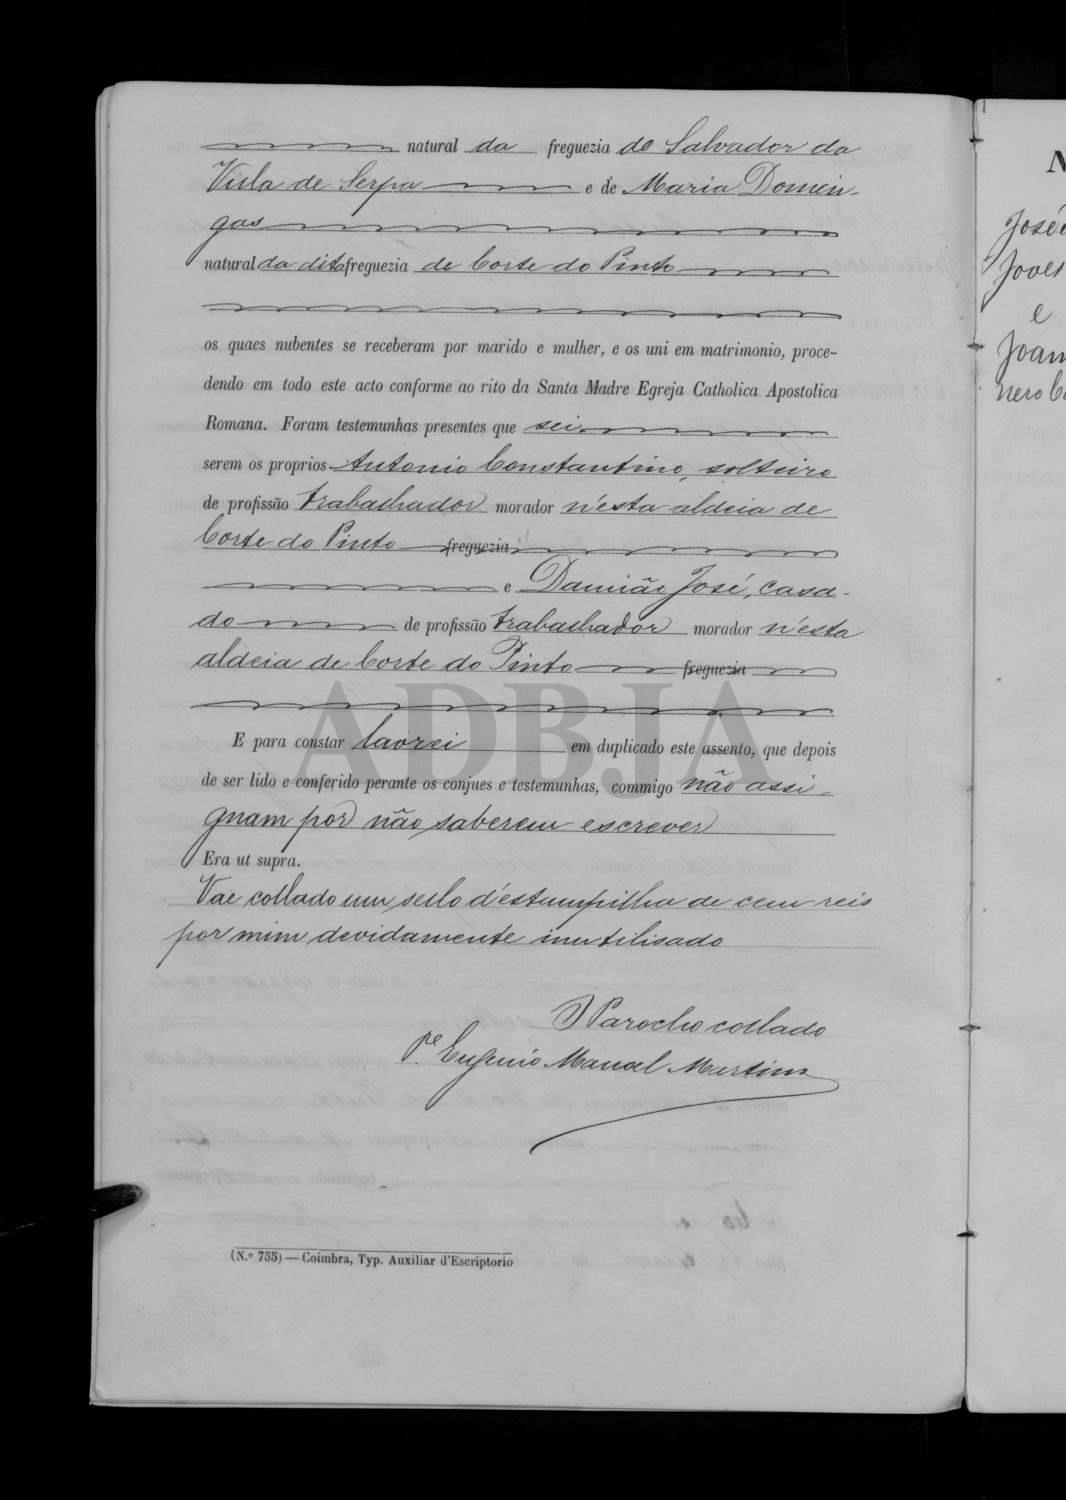 natural da freguezia do Salvador da
Villa de Serpa e de Maria Domin-
gas
natural da dita freguezia de Corte do Pinto
os quaes nubentes se receberam por marido e mulher, e os uni em matrimonio, proce-
dendo em todo este acto conforme ao rito da Santa Madre Egreja Catholica Apostolica
Romana. Foram testemunhas presentes que sei
serem os proprios Antonio Constantino, solteiro
de profissão trabalhador morador n'esta aldeia de
Corte do Pinto freguezia
e Damião José, casa-
do de profissão trabalhador morador n'esta
aldeia de Corte do Pinto freguezia
ADBJA
E para constar lavrei em duplicado este assento, que depois
de ser lido e conferido perante os conjues e testemunhas, commigo não assi-
gnam por não saberem escrever
Era ut supra.
Vae collado um sello d'estampilha de cem reis
por mim devidamente inutilisado
O Parocho collado
P.e Eugenio Manoel Martins
(N.º 755) — Coimbra, Typ. Auxiliar d'Escriptorio
N
José
e
Joan